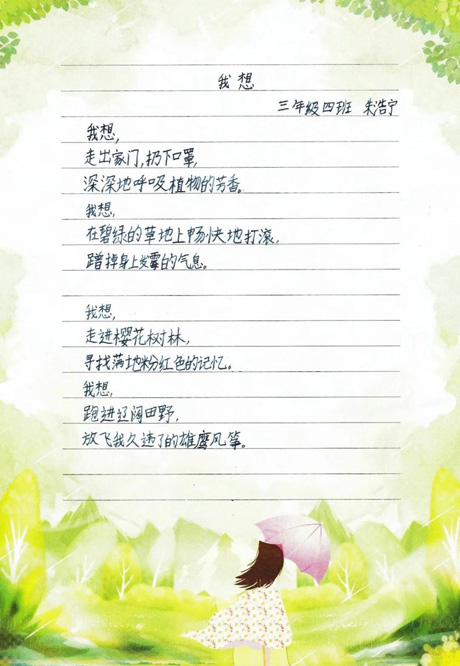 我想
三年级四班 朱浩宁
我想,
走出家门,扔下口罩,
深深地呼吸植物的芳香。
我想,
在碧绿的草地上畅快地打滚,
蹭掉身上发霉的气息。
我想,
走进樱花树林,
寻找满地粉红色的记忆。
我想,
跑进辽阔田野,
放飞我久违了的雄鹰风筝。